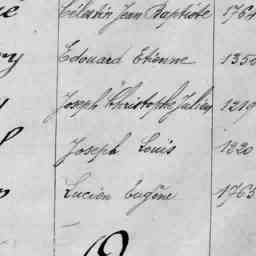 Célestin Jean Baptiste 1764
Edouard Etienne 1350
Joseph Christophe Julien 1219
Joseph Louis 1220
Lucien Eugène 1765